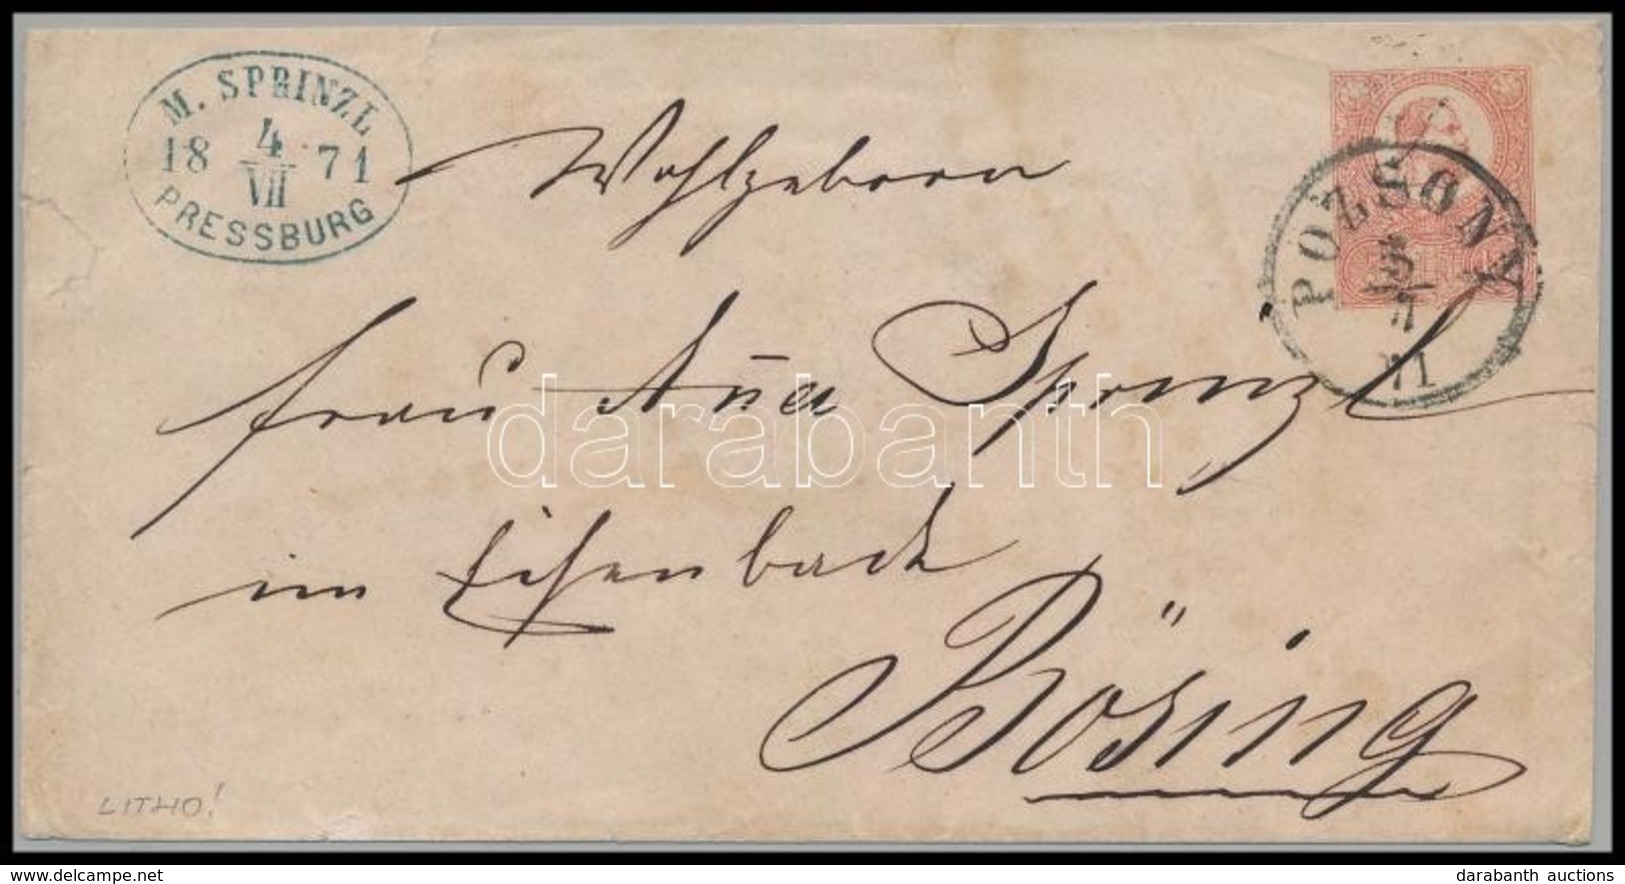 M. SPRINZL
18 4/VII 71
PRESSBURG
POZSONY
5/7
71
Wohlgeborn
Frau Anna Sprinzl
im Eisenbach
Bösing
LITHO!
darabanth
www.delcampe.net
darabanth auctions